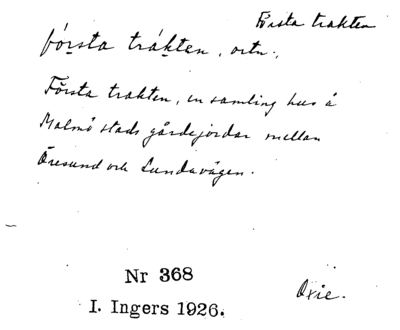 Första trakten
fó̱rsta tráḵten, ortn.,
Första trakten, en samling hus å
Malmö stads gårdejordar mellan
Öresund och Lundavägen.
Nr 368
I. Ingers 1926.
Oxie.